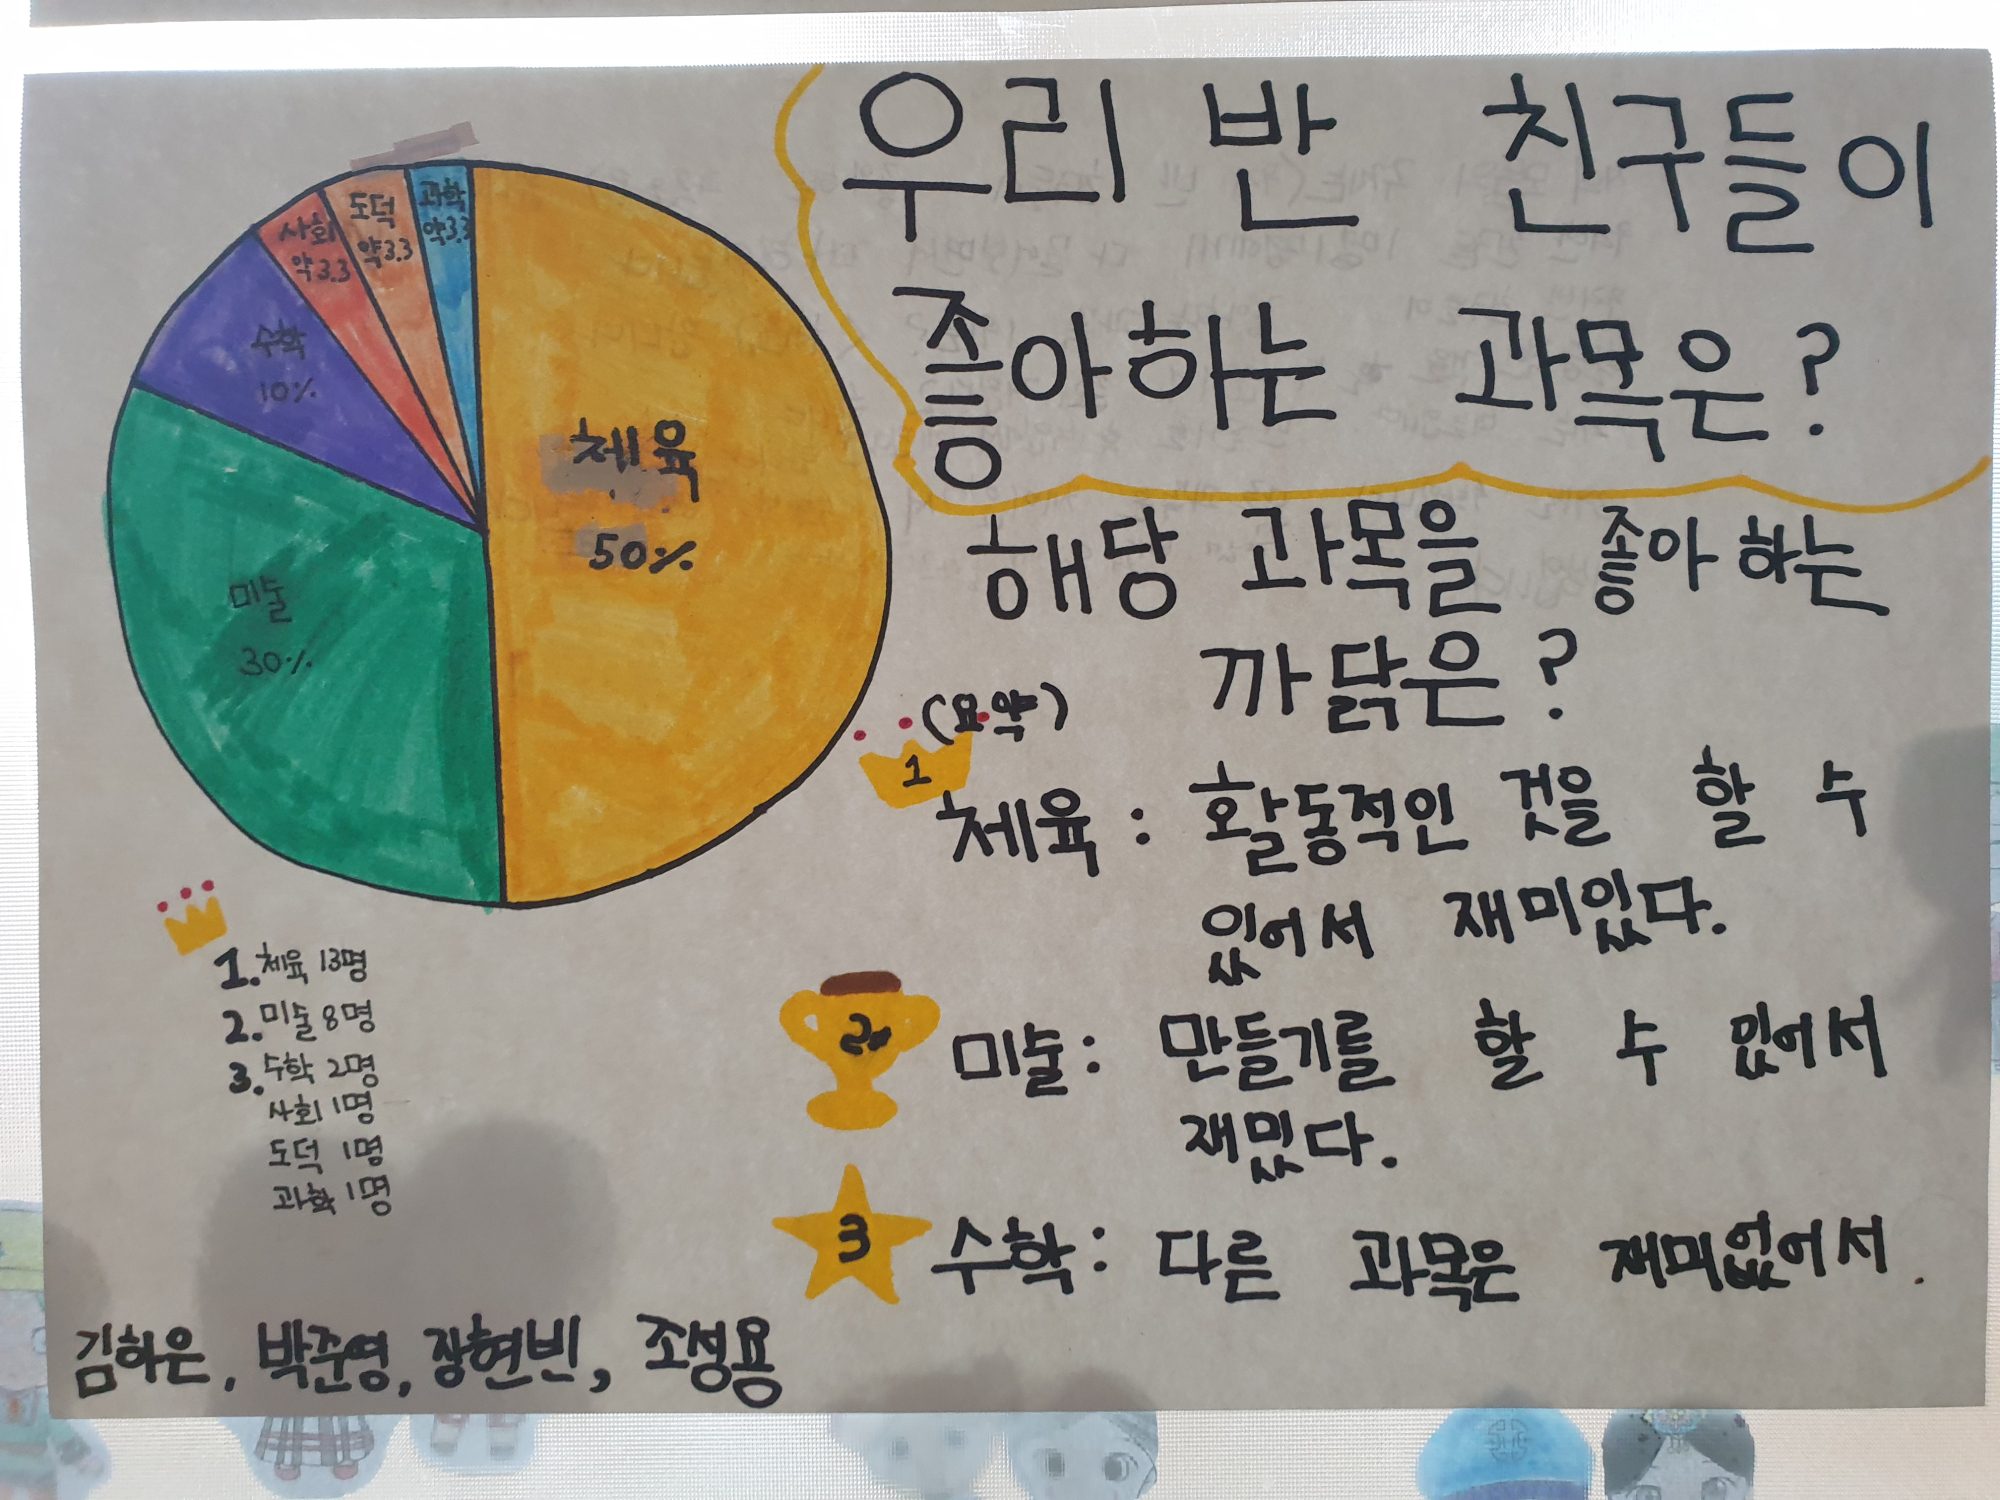 우리 반 친구들이
좋아하는 과목은?
과학
약3.3
도덕
약3.3
사회
약3.3
수학
10%
체육
50%
미술
30%
해당 과목을 좋아하는
까닭은?
(요약)
1
체육 : 활동적인 것을 할 수
있어서 재미있다.
2
미술: 만들기를 할 수 있어서
재밌다.
3
수학: 다른 과목은 재미없어서.
1. 체육 13명
2. 미술 8명
3. 수학 2명
사회 1명
도덕 1명
과학 1명
김하은, 박준영, 장현빈, 조성용